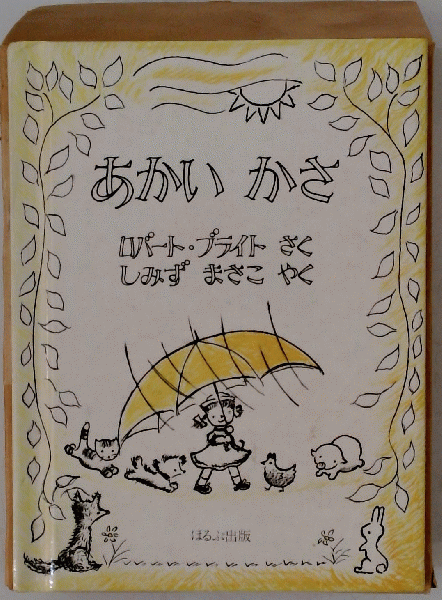 あかい かさ
ロバート・ブライト さく
しみず まさこ やく
ほるぷ出版